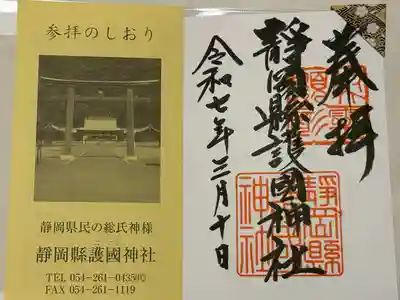 参拝のしおり
静岡県民の総氏神様
靜岡縣護國神社
TEL 054-261-0435㈹
FAX 054-261-1119
奉拝
靜岡縣護國神社
令和七年三月十日
靜岡縣
神社